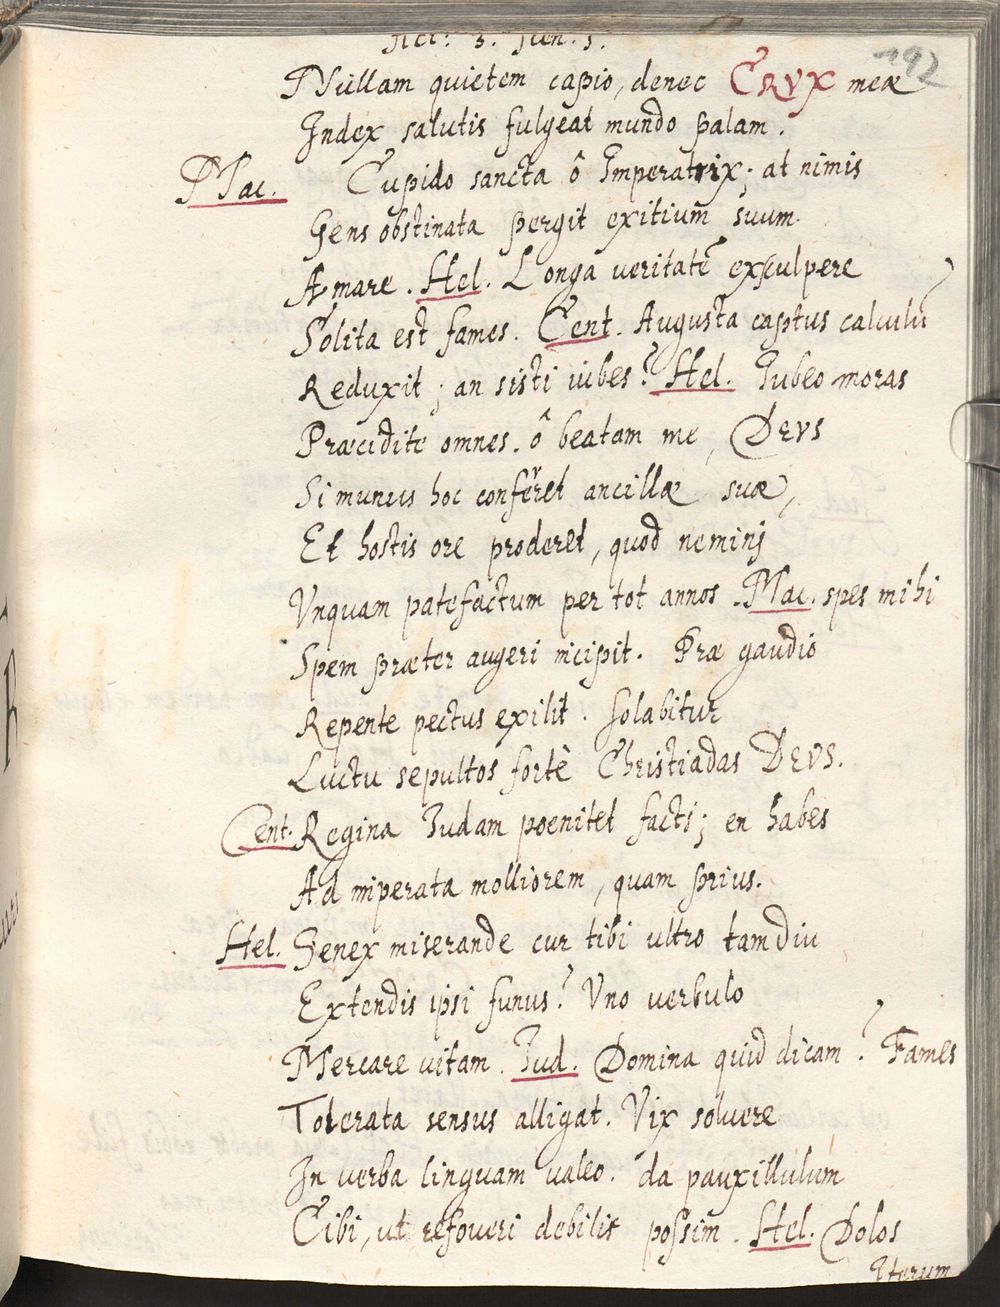 Act: 3. Scen. 5.
192
Nullam quietem capio, denec CRVX meæ
Index salutis fulgeat mundo palam.
Mac. Cupido sancta ô Imperatrix; at nimis
Gens obstinata pergit exitium̄ suum.
Amare. Hel. Longa veritatē exsculpere
Solita est fames. Cent. Augusta captus calculū
Reduxit; an sisti iubes? Hel. Iubeo moras
Præcidite omnes. ô beatam me, DEVS
Si munus hoc conferret ancillæ suæ,
Et hostis ore proderet, quod neminj
Vnquam patefactum per tot annos. Mac. spes mihi
Spem præter augeri incipit. Præ gaudio
Repente pectus exilit. Solabitur
Luctu sepultos fortè Christiadas DEVS.
Cent. Regina Iudam poenitet facti; en habes
Ad imperata molliorem, quam prius.
Hel. Senex miserande cur tibi ultro tamdiu
Extendis ipsi funus? Vno verbulo
Mercare vitam. Iud. Domina quid dicam? Fames
Tolerata sensus alligat. Vix solvere
In verba linguam valeo. da pauxillulum
Cibi, ut refoveri debilis possim. Hel. Dolos
Iterum